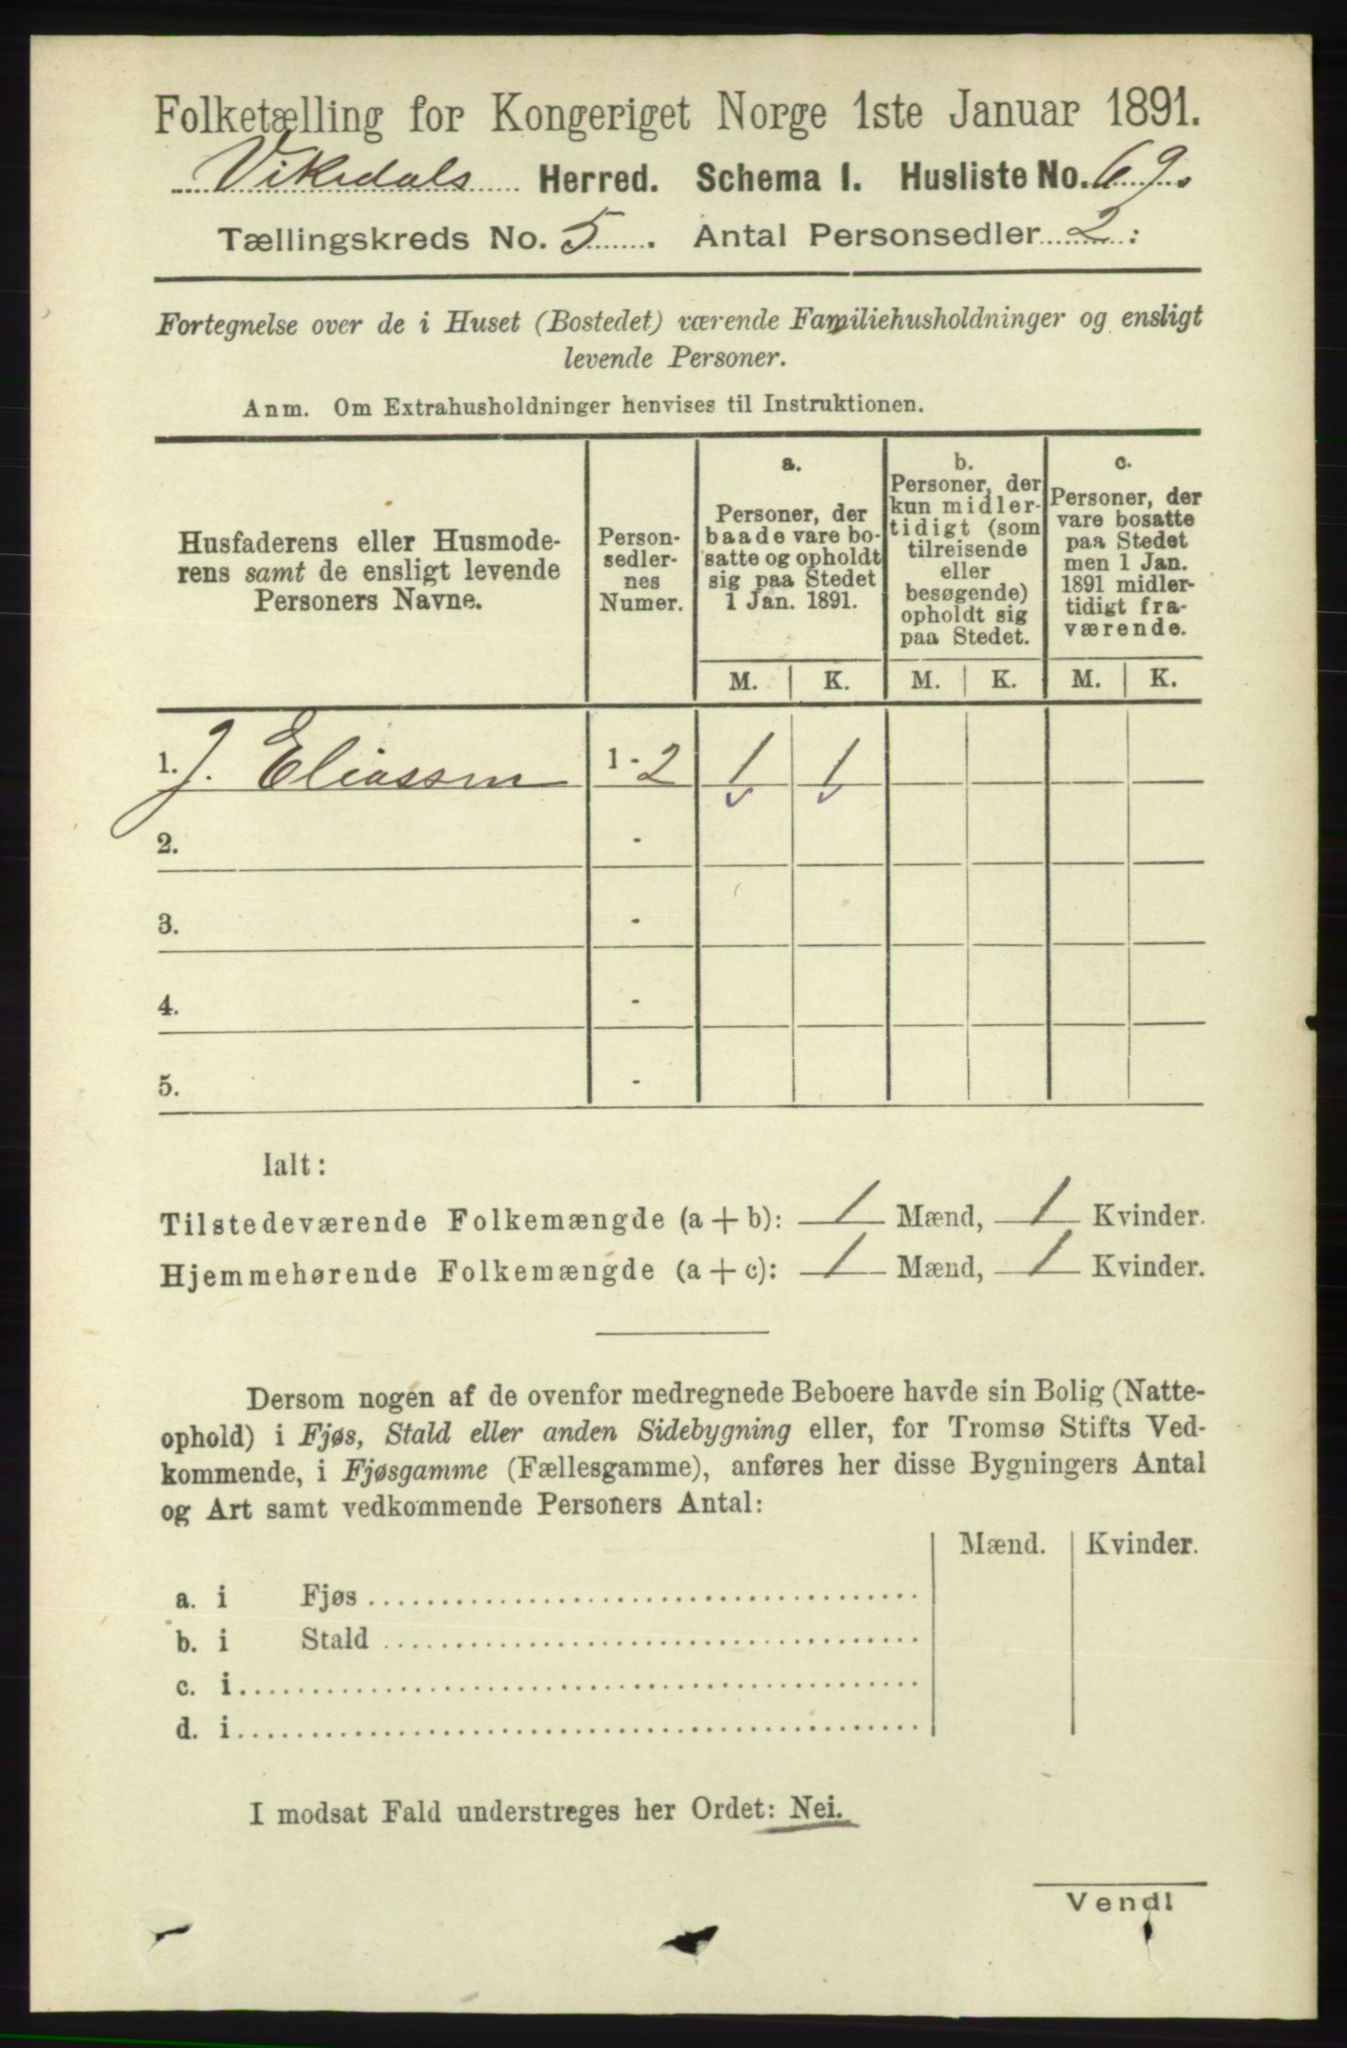 Folketælling for Kongeriget Norge 1ste Januar 1891.
Vikedals Herred. Schema I. Husliste No. 69.
Tællingskreds No. 5. Antal Personsedler 2:
Fortegnelse over de i Huset (Bostedet) værende Familiehusholdninger og ensligt
levende Personer.
Anm. Om Extrahusholdninger henvises til Instruktionen.
Husfaderens eller Husmode-
rens samt de ensligt levende
Personers Navne.
Person-
sedler-
nes
Numer.
a.
Personer, der
baade vare bo-
satte og opholdt
sig paa Stedet
1 Jan. 1891.
b.
Personer, der
kun midler-
tidigt (som
tilreisende
eller
besøgende)
opholdt sig
paa Stedet.
c.
Personer, der
vare bosatte
paa Stedet
men 1 Jan.
1891 midler-
tidigt fra-
værende.
M. K. M. K. M. K.
1. J. Eliassen 1 - 2 1 1
2. -
3. -
4. -
5. -
Ialt:
Tilstedeværende Folkemængde (a + b): 1 Mænd, 1 Kvinder.
Hjemmehørende Folkemængde (a + c): 1 Mænd, 1 Kvinder.
Dersom nogen af de ovenfor medregnede Beboere havde sin Bolig (Natte-
ophold) i Fjøs, Stald eller anden Sidebygning eller, for Tromsø Stifts Ved-
kommende, i Fjøsgamme (Fællesgamme), anføres her disse Bygningers Antal
og Art samt vedkommende Personers Antal:
Mænd. Kvinder.
a. i Fjøs
b. i Stald
c. i
d. i
I modsat Fald understreges her Ordet: Nei.
Vendl